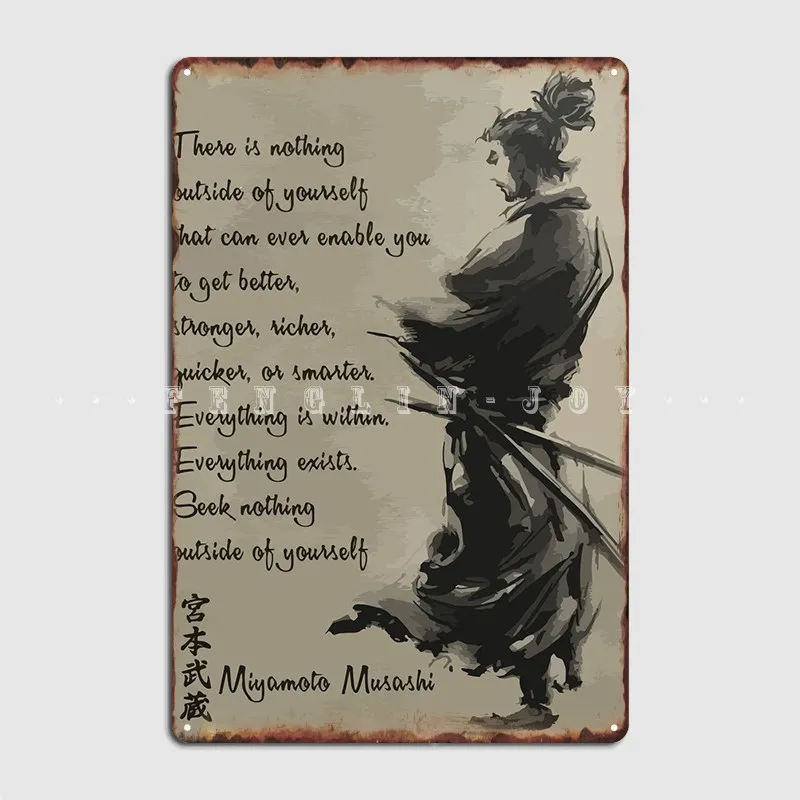 There is nothing
outside of yourself
that can ever enable you
to get better,
stronger, richer,
quicker, or smarter.
FENGLIN-JOY
Everything is within.
Everything exists.
Seek nothing
outside of yourself
宮本武蔵
Miyamoto Musashi